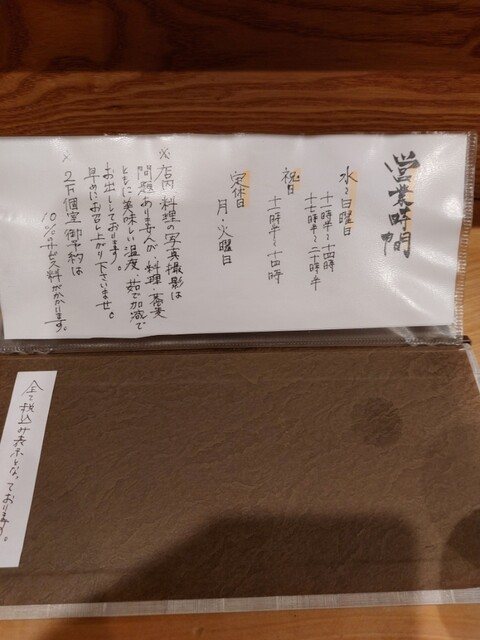 営業時間
水〜日曜日
十一時半〜十四時
十七時半〜二十時半
祝日
十一時半〜十四時
定休日
月・火曜日
※店内、料理の写真撮影は
問題ありませんが、料理・蕎麦
ともに美味しい温度、茹で加減で
お出ししております。
早めにお召し上がり下さいませ。
※2F個室御予約は
10%のサービス料がかかります。
全て税込み表示となっております。